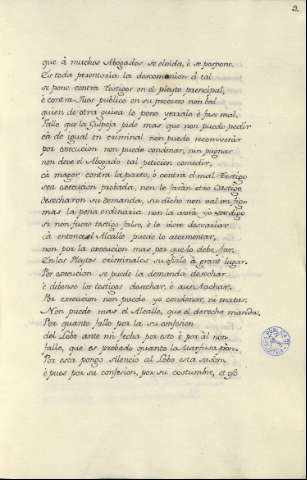 2.
que à muchos Abogados se olvida, è se pospone.
Es toda perentoria la descomunion à tal
se pone contra Testigos en el pleyto principal,
è contra Jues publico en su proceso non bal
quien de otra guisa lo pone yerralo è fase mal.
Fallo que la Gulpeja pide mas que non puede pedir
cà de igual en criminal non puede reconvenir
por execucion non puede condenar, nin puginar
non deve el Abogado tal peticion comedir.
cà mayor contra la parte, ò contra el mal Testigo
sea execucion probada, non le faràn otro Castigo
desecharon su demanda, su dicho non val un figo
mas la pena ordinaria non la avrà yo vos digo
si non fuere testigo falso, è lo viere desvariar
cà entonce el Alcalle puede lo atormentar,
non por la execucion mas por que lo debe far
En los Pleytos criminales su fialo à grant lugar.
Por execucion se puede la demanda desechar
è dibense los testigos desechar, è aun tachar.
Por execucion non puedo yo condenar, ni matar.
Non puede mas el Alcalle, que el derecho manda.
Por quanto fallo por la su confesion
del Lobo ante mi fecha por esto è por àl non
fallo, que es probado quanto la Marfusa pon.
Por esta pongo silencio al Lobo esta sason.
è pues por su confesion, por su costumbre, et uso